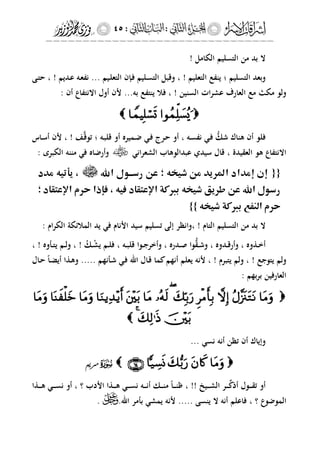 : ٤٥ :
لا بد من التسليم الكامل !
وبعد التسليم ؛ ينفع التعليم ! ، وقبل التسليم فإن التعليم ... نفعه عديم ! ، حتى
ولو مكث مع العارف عشرات السنين ! ، فلا ينتفع به... لأن أول الانتفاع أن :
﴿ وَيُسَلِّمُوا تَسْلِيمًا ﴾
فلو أن هناك شكٌ في نفسه ، أو حرج في ضميره أو قلبه ؛ توقَّف ! ، لأن أساس
الانتفاع هو العقيدة ، قال سيدي عبدالوهاب الشعراني وأرضاه في مننه الكبرى :
{{ إن إمداد المريد من شيخه ؛ عن رسول الله ﷺ ، يأتيه مدد
رسول الله عن طريق شيخه ببركة الإعتقاد فيه ، فإذا حرم الإعتقاد ؛
حرم النفع ببركة شيخه }}
لا بد من التسليم التام ! ,وانظر إلى تسليم سيد الأنام في يد الملائكة الكرام :
أخذوه ، وأرقدوه ، وشقُّوا صدره ، وأخرجوا قلبه ، فلم يشكّ ! ، ولم يتأوه ! ،
ولم يتوجع ! ، ولم يتبرم ! ، لأنه يعلم أنهم كما قال الله في شأنهم ..... وهذا أيضاً حال
العارفين بربهم :
﴿ وَمَا نَتَنَزَّلُ إِلَّا بِأَمْرِ رَبِّكَ ۖ لَهُ مَا بَيْنَ أَيْدِينَا وَمَا خَلْفَنَا وَمَا
بَيْنَ ذَٰلِكَ ۚ ﴾
وإياك أن تظن أنه نسي ...
﴿ وَمَا كَانَ رَبُّكَ نَسِيًّا ﴾ سورة مريم
أو تقول أذكّر الشيخ !! ، ظناً منك أنه نسي هذا الأدب ؟ ، أو نسي هذا
الموضوع ؟ ، فاعلم أنه لا ينسى ..... لأنه يمشي بأمر الله .